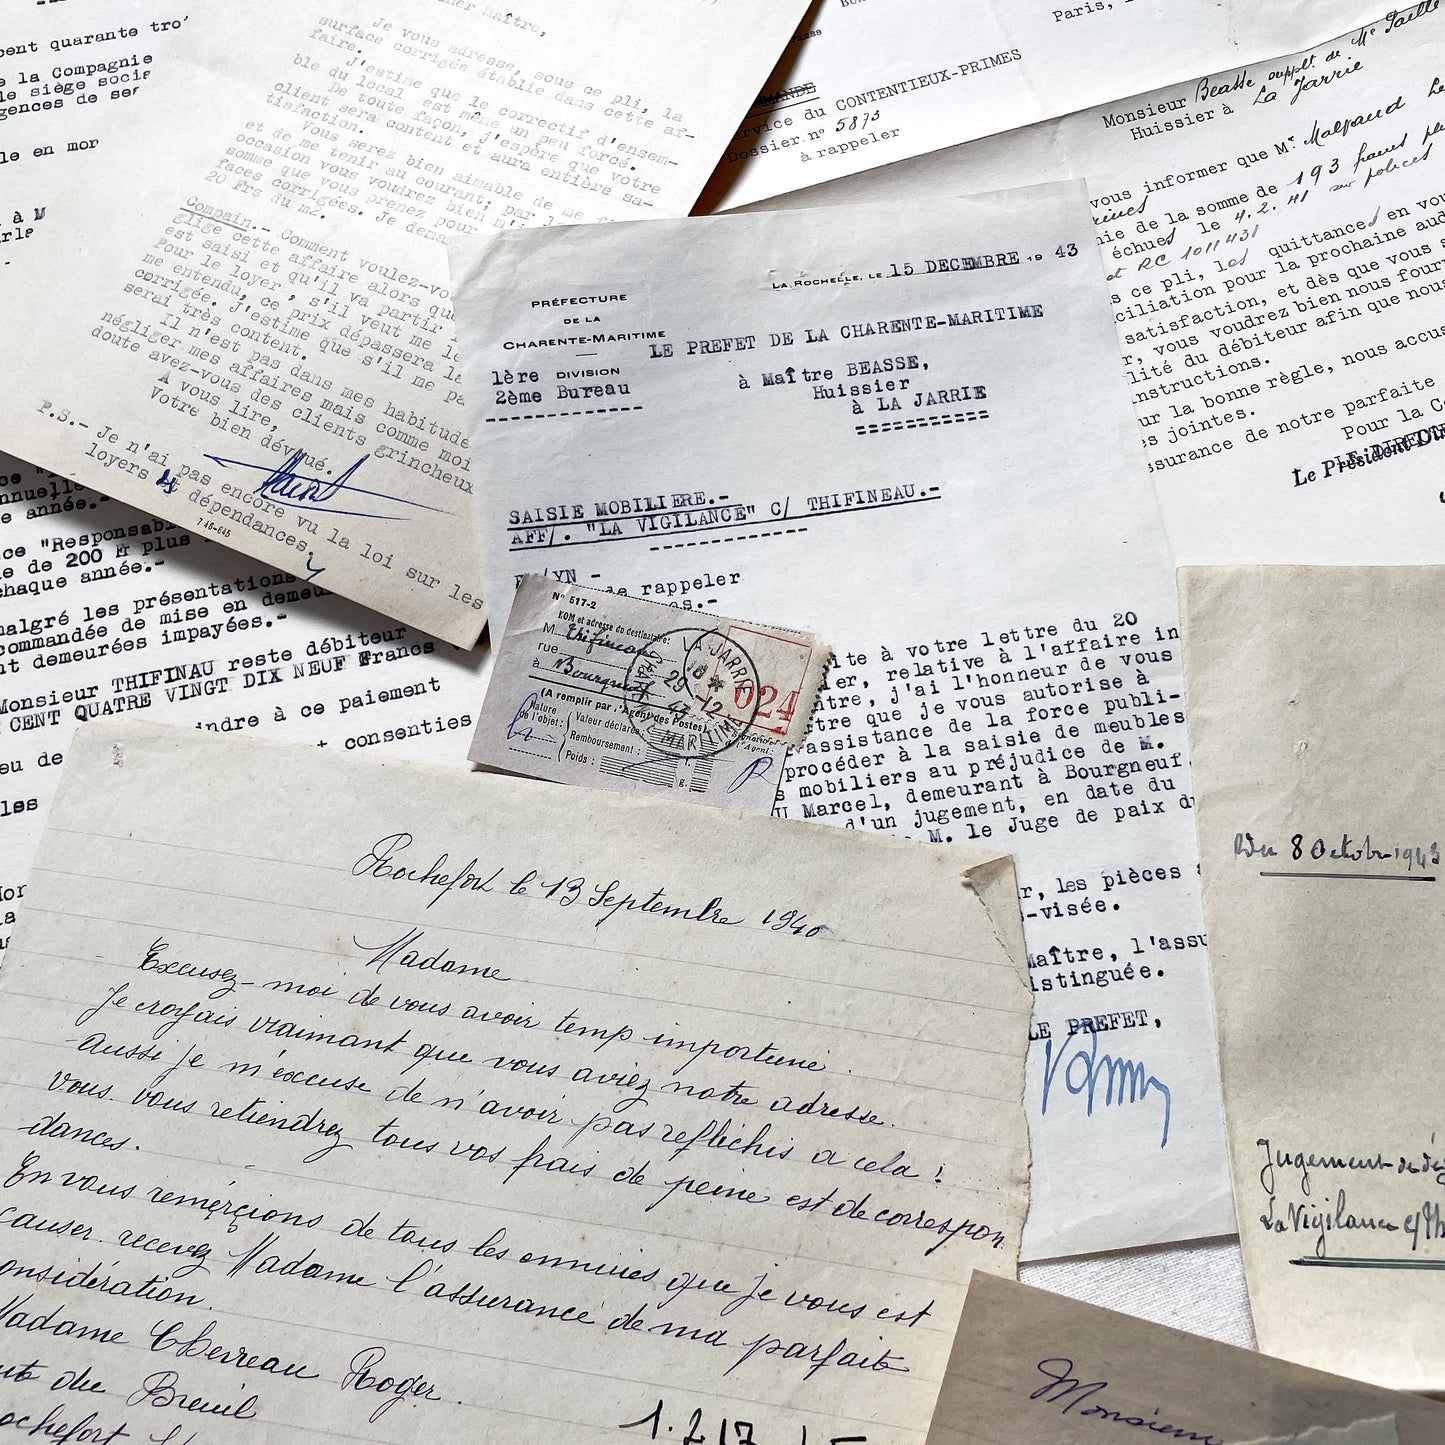 cent quarante
e la Compagnie
le siège
le en
à M
Je vous adresse, sous ce pli, la
surface corrigée établie dans cette af-
faire.
J'estime que le correctif d'ensem-
ble du local est même un peu forcé.
De toute façon, j'espère que votre
client sera content et aura entière sa-
tisfaction.
Vous serez bien aimable de me
et de me tenir au courant; par
occasion vous voudrez bien
somme que vous prenez pour
faces corrigées. Je
20 frs du m2.
Compain.- Comment voulez-vo
glige cette affaire alors que
est saisi et qu'il va partir
Pour le loyer, s'il veut me
me entendu, ce prix dépassera la
corrigée. J'estime que s'il me
serai très content.
Il n'est pas dans mes habitude
négliger mes affaires mais comme moi
doute avez-vous des clients grincheux
A vous lire,
Votre bien dévoué.
P.S.- Je n'ai pas encore vu la loi sur les
loyers et dépendances.
746-645
Paris,
Service du CONTENTIEUX-PRIMES
Dossier n° 5873
à rappeler
Monsieur Beasse
Huissier à La Jarrie
vous informer que
de la somme de 193 francs
échues le 4.2.41 sur polices
et RC 1011431
s ce pli, les quittances en
ciliation pour la prochaine
satisfaction, et dès que vous
r, vous voudrez bien nous
lité du débiteur afin que nous
nstructions.
ur la bonne règle, nous
s jointes.
ssurance de notre parfaite
Pour la
LE DIRECTE
Le Président
LA ROCHELLE, LE 15 DECEMBRE 19 43
PRÉFECTURE
DE LA
CHARENTE-MARITIME
1ère DIVISION
2ème Bureau
LE PREFET DE LA CHARENTE-MARITIME
à Maître BEASSE,
Huissier
à LA JARRIE
SAISIE MOBILIERE.-
AFF/. "LA VIGILANCE" C/ THIFINEAU.-
de rappeler
ite à votre lettre du 20
er, relative à l'affaire in
ntre, j'ai l'honneur de vous
tre que je vous autorise à
assistance de la force publi-
procéder à la saisie de meubles
s mobiliers au préjudice de M.
U Marcel, demeurant à Bourgneuf
d'un jugement, en date du
M. le Juge de paix du
r, les pièces
-visée.
Maître, l'assu
istinguée.
LE PREFET,
N° 517-2
NOM et adresse du destinataire:
M. Thifineau
rue
à Bourgneuf
(A remplir par l'Agent des Postes)
Nature de l'objet:
Valeur déclarée:
Remboursement:
Poids:
f.
g.
024
LA JARRIE
29-12
43
MARITIME
nnuelle
e année.-
ce "Responsabi
e de 200 Fr plus
chaque année.-
malgré les présentations
commandée de mise en
t demeurées impayées.-
Monsieur THIFINAU reste débiteur
CENT QUATRE VINGT DIX NEUF Francs
indre à ce paiement
consenties
eu de
les
Rochefort le 13 Septembre 1940
Madame
Excusez-moi de vous avoir temp importuné.
Je croyais vraimant que vous aviez notre adresse.
Aussi je m'excuse de n'avoir pas refléchis a cela!
Vous vous retiendrez tous vos frais de peine est de correspon
dances.
En vous remerçions de tous les ennuies que je vous est
causer. recevez Madame l'assurance de ma parfaite
onsidération.
Madame Chevreau Roger.
du Breuil
ochefort
1.217
Du 8 Octobre 1943
Jugement de
La Vigilance c/ Th
Monsieur